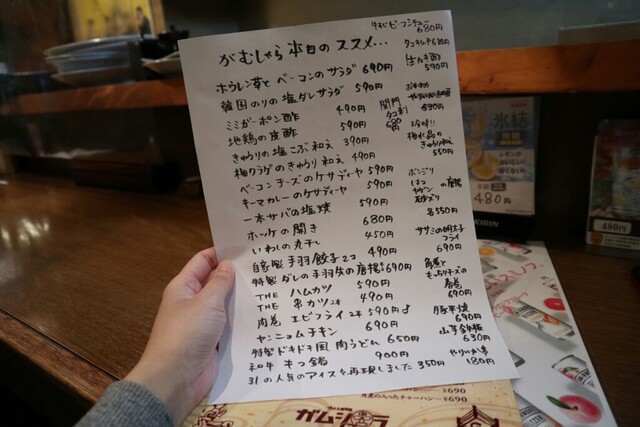 がむしゃら本日のススメ...
ホウレン草と ベーコンのサラダ 690円
韓国のりの塩ダレサラダ 590円
ミミガーポン酢 490円
地鶏の皮酢 590円
きゅうりの塩こぶ和え 390円
梅クラゲのきゅうり和え 490円
ベーコンチーズのケサディーヤ 590円
キーマカレーのケサディーヤ 590円
一本サバの塩焼 590円
ホッケの開き 680円
いわしの丸干し 450円
自家製 手羽餃子2コ 490円
特製ダレの手羽先の唐揚 690円
THE ハムカツ 590円
THE 串カツ2本 490円
肉巻 エビフライ 2本 590円
ヤンニョムチキン 690円
特製ドキドキ風 肉うどん 650円
和牛 もつ鍋 900円
31の人気のアイスを再現しました 350円
牛すじビーフシチュー 680円
タコキムチ 630円
590円
830円
関門タコ刺 680円
珍味!!
梅水晶の
きゅうり和え
550円
ボンジリ
はつ
ヤゲン
砂ズリ
の唐揚
各550円
ササミの明太子
フライ
690円
角煮と
もっちりチーズの
春巻
690円
豚平焼
690円
山芋鉄板
630円
180円
氷結
480円
KIRIN
480円
角煮の入ったチャーハン ¥690
¥690
ガムシャラ